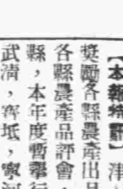 【本報特訊】津
奬勵各縣農產出品
各縣農產品評會，
縣，本年度暫舉行
武清，寳坻，寧河